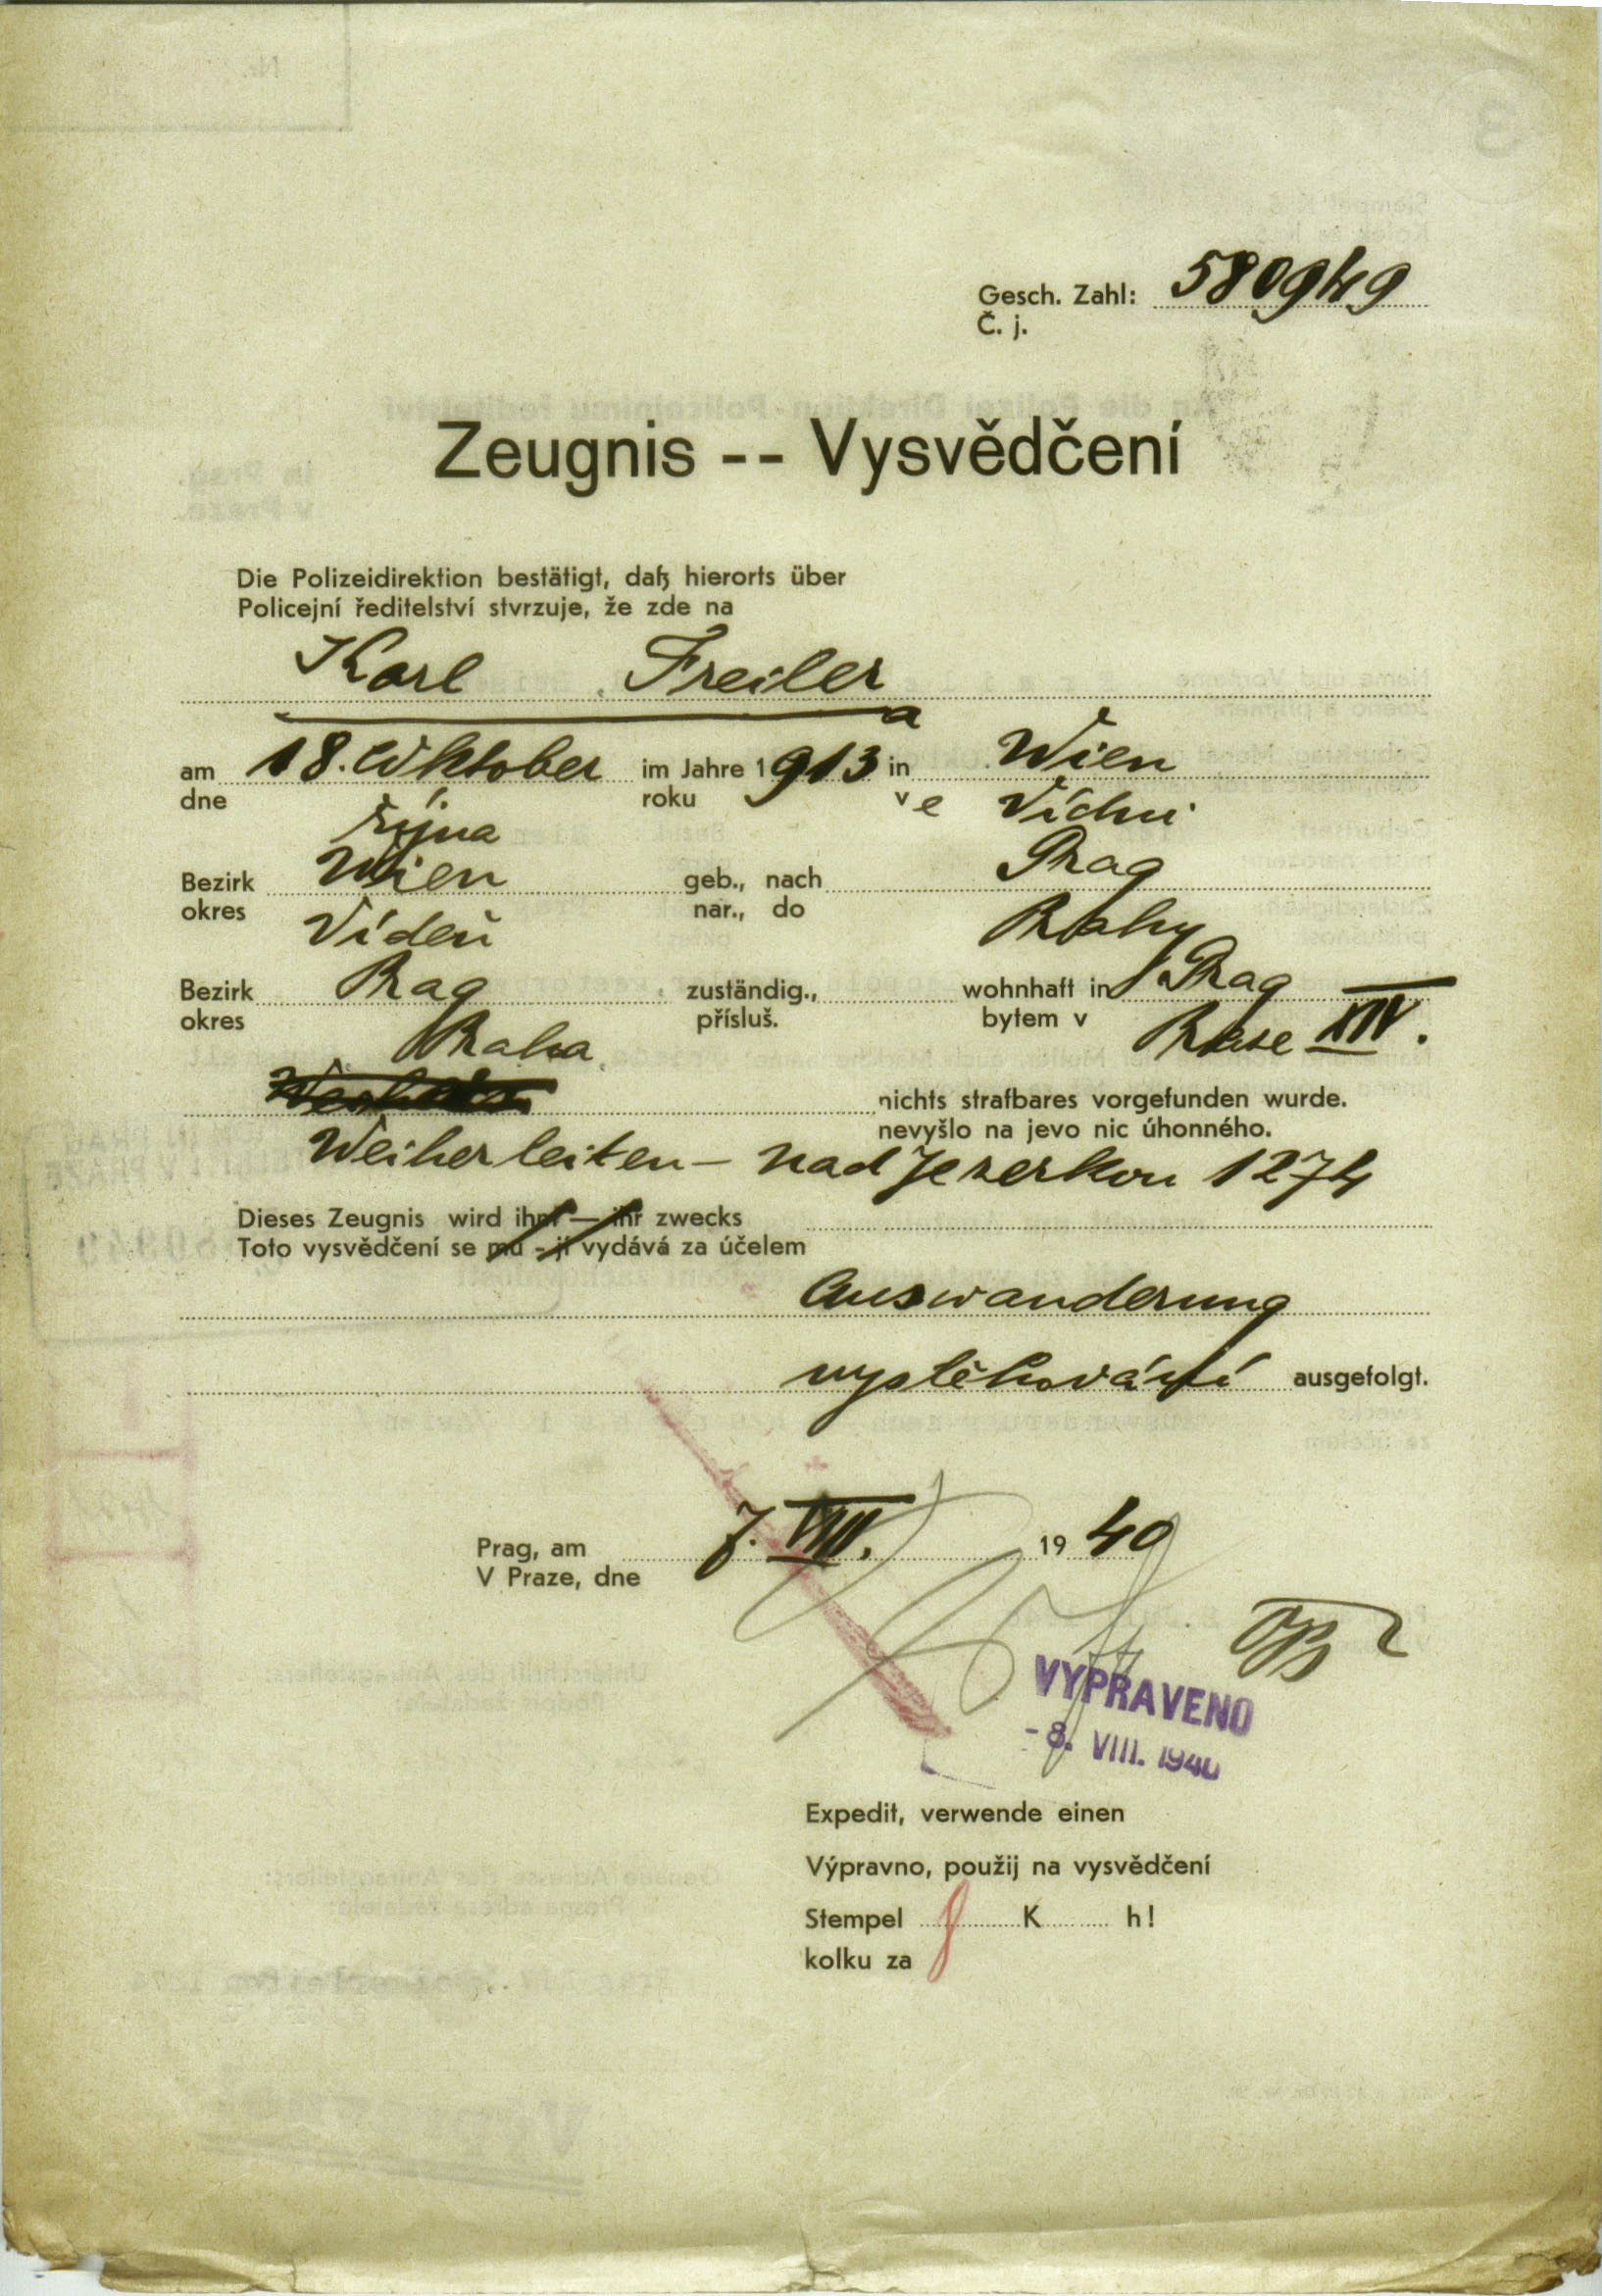 Gesch. Zahl: 580949
Č. j.
Zeugnis -- Vysvědčení
Die Polizeidirektion bestätigt, daß hierorts über
Policejní ředitelství stvrzuje, že zde na
Karl Freiler
a
am 18. Oktober im Jahre 1913 in Wien
dne října roku ve Vídni
Bezirk Wien geb., nach Prag
okres Vídeň nar., do Prahy
Bezirk Prag zuständig., wohnhaft in Prag
okres Praha přísluš. bytem v Praze XIV.
nichts strafbares vorgefunden wurde.
nevyšlo na jevo nic úhonného.
Weiherleiten – nad Jezerkou 1274
Dieses Zeugnis wird ihm — ihr zwecks
Toto vysvědčení se mu - jí vydává za účelem
Auswanderung
vystěhování ausgefolgt.
Prag, am 7. VIII. 1940
V Praze, dne
VYPRAVENO
- 8. VIII. 1940
Expedit, verwende einen
Výpravno, použij na vysvědčení
Stempel 8 K h!
kolku za